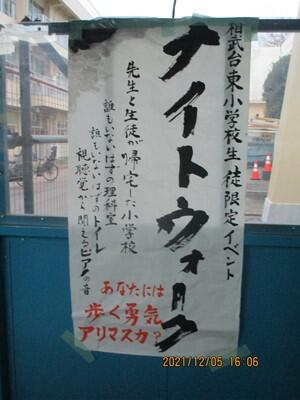 相武台東小学校生徒限定イベント
ナイトウォーク
先生と生徒が帰宅した小学校
誰もいないはずの理科室
誰もいないはずのトイレ
視聴覚から聞えるピアノの音
あなたには
歩く勇気
アリマスカ?
2021/12/05 16:06